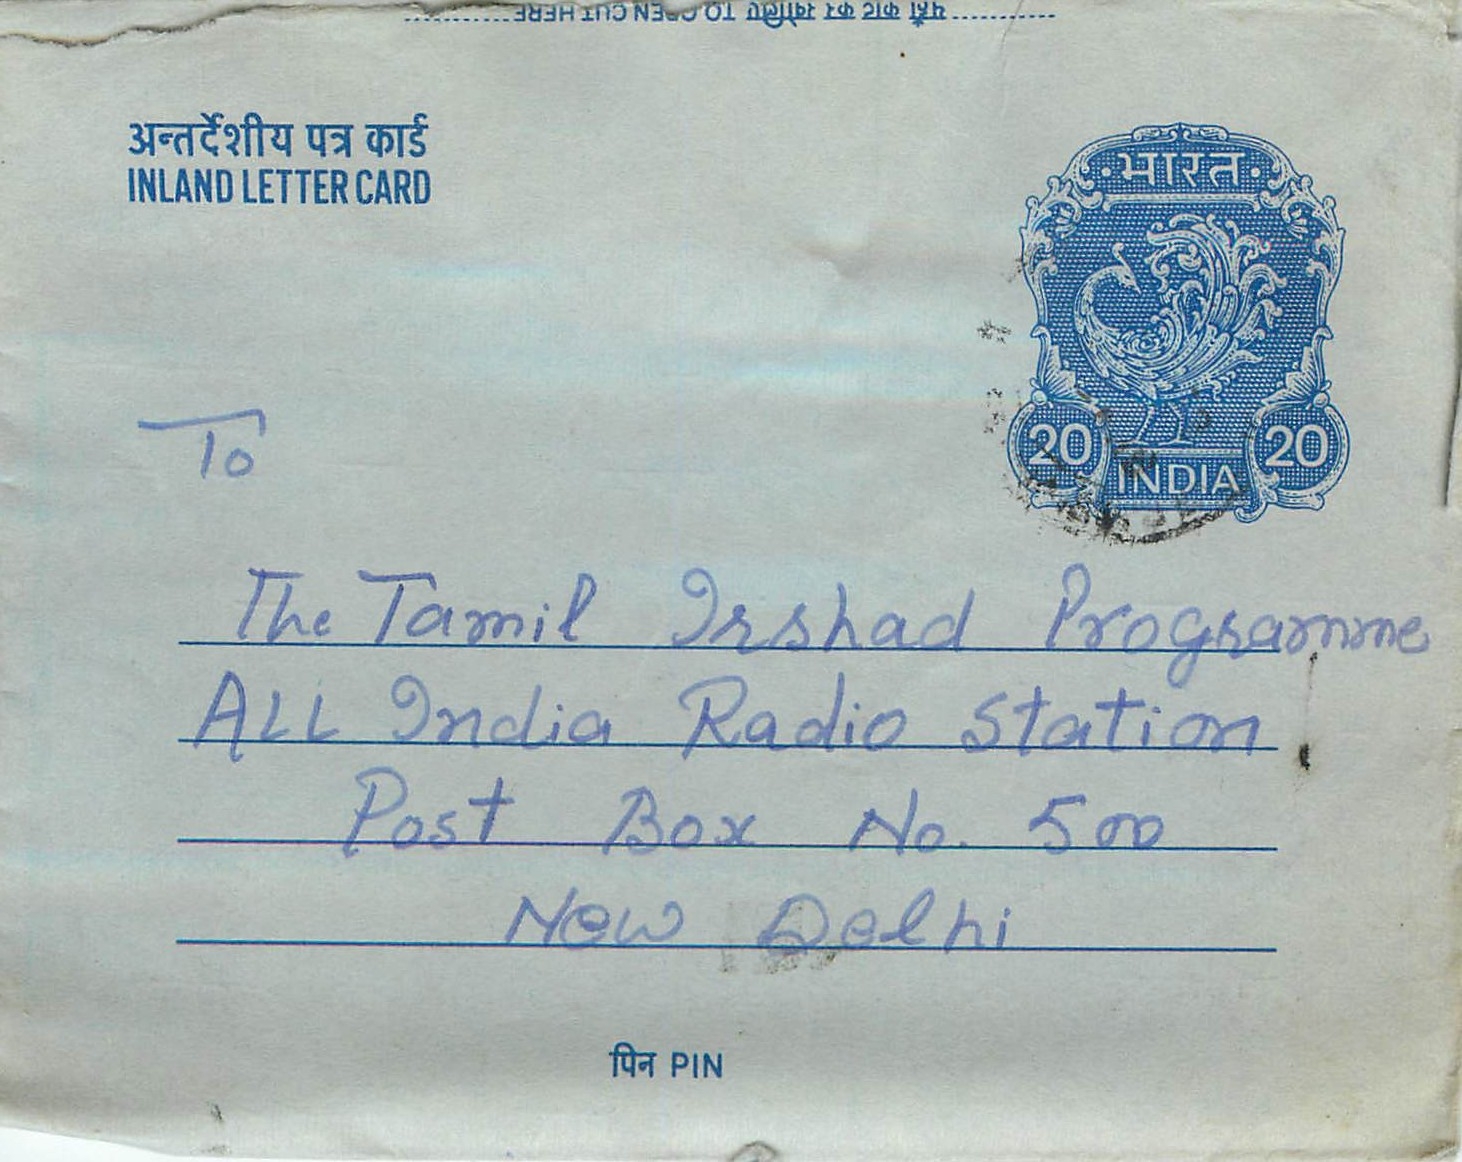 यहाँ काट कर खोलिए TO OPEN CUT HERE
अन्तर्देशीय पत्र कार्ड
INLAND LETTER CARD
भारत
20 20
INDIA
To
The Tamil Irshad Programme
ALL India Radio Station
Post Box No. 500
New Delhi
पिन PIN